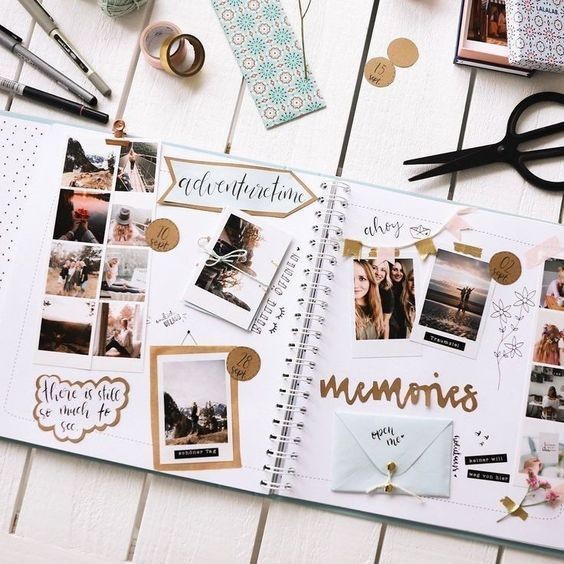 LALALAB
15
sept.
adventure time
10
sept
BITTE ÖFFNEN
28
sept
schöner Tag
there is still
so much to
see.
ahoy
02
Traumziel
memories
open
me
keiner will
weg von hier